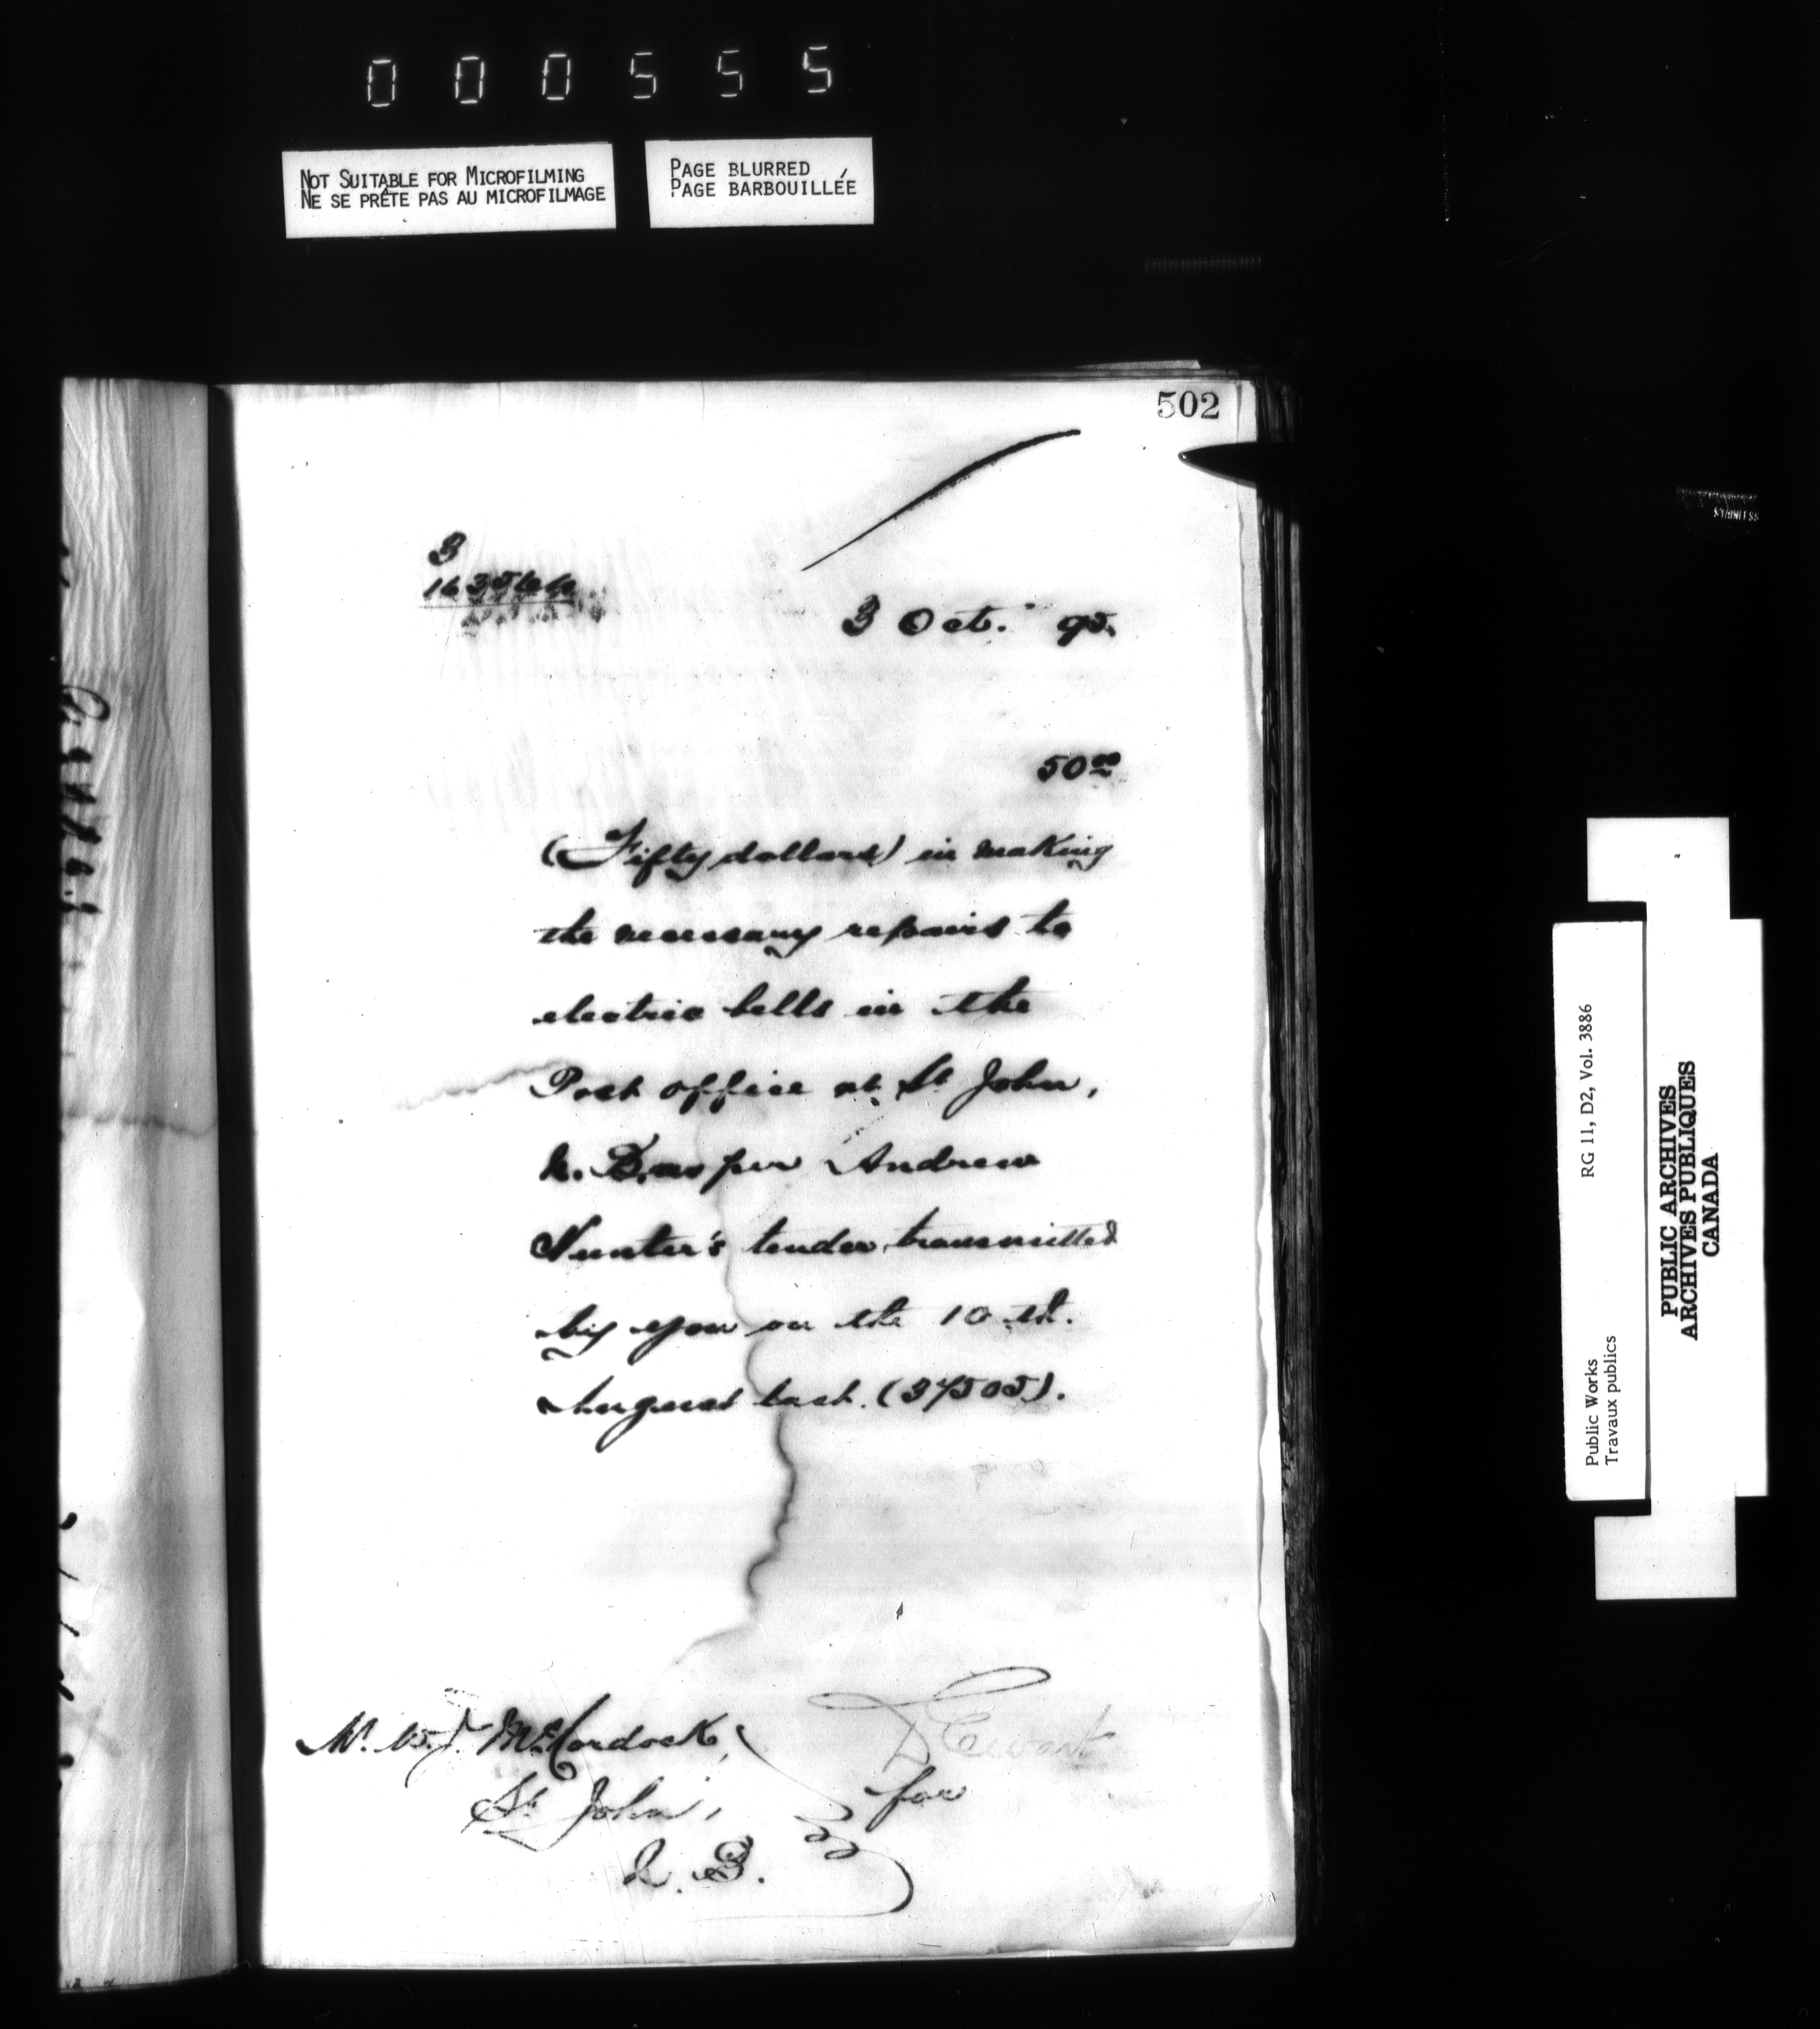 000555
NOT SUITABLE FOR MICROFILMING
NE SE PRÊTE PAS AU MICROFILMAGE
PAGE BLURRED
PAGE BARBOUILLÉE
502
3
3 Oct. 95.
50 00
(Fifty dollars) in making
the necessary repairs to
electric bells in the
Post office at St John,
N. B. as per Andrew
Hunter's tender transmitted
by you on the 10 th.
August last. (37505).
Mr. W. J. McCordock,
St John,
N. B.
D Ewart
for
RG 11, D2, Vol. 3886
Public Works
Travaux publics
PUBLIC ARCHIVES
ARCHIVES PUBLIQUES
CANADA
STAINLESS